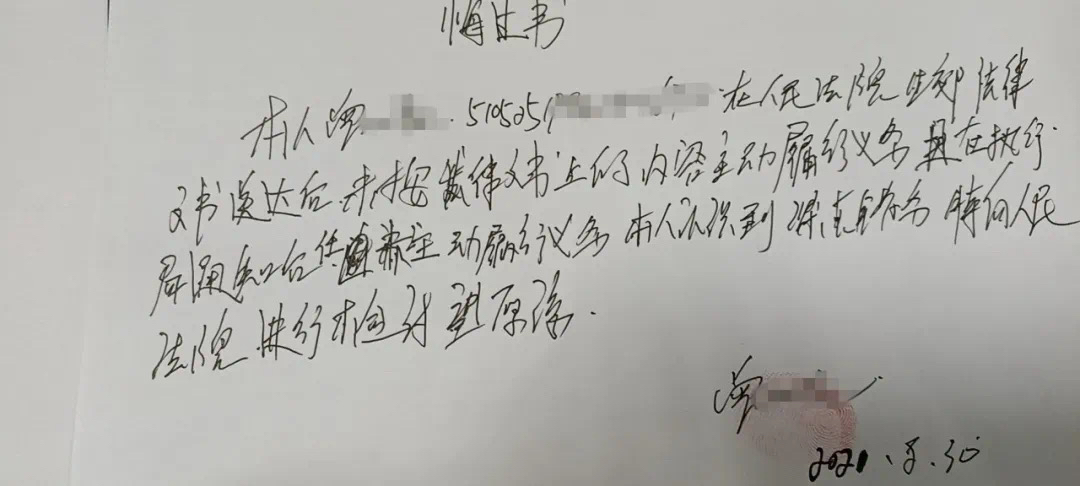 悔过书
本人曾 510525197 在人民法院生效法律
文书送达后,未按法律文书上的内容主动履行义务且在执行
局通知后任未主动履行义务 本人认识到 错误 特向人民
法院进行检讨望原谅.
曾
2021.3.30